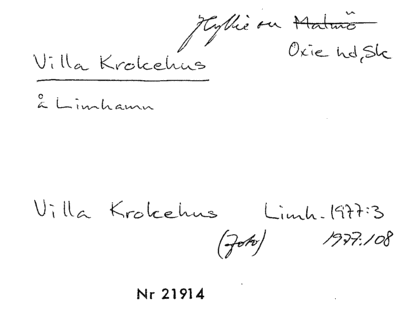 Hyllie sn Malmö
Oxie hd, Sk
Villa Krokehus
å Limhamn
Villa Krokehus Limh. 1977:3
(foto) 1977:108
Nr 21914